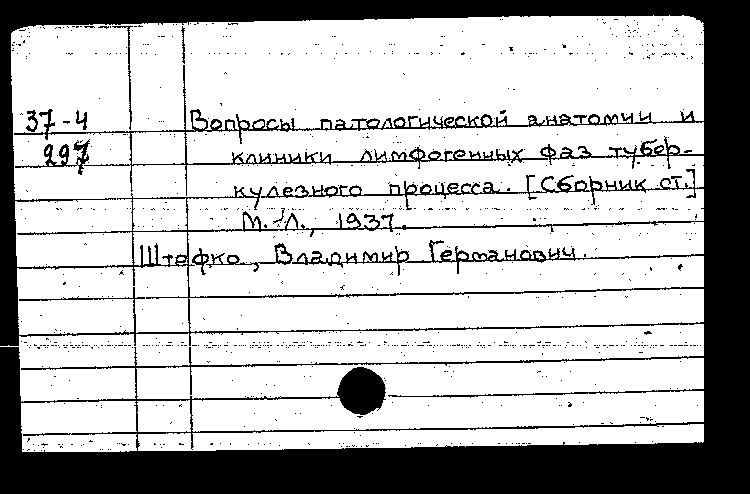 37-4 Вопросы патологической анатомии и
297 клиники лимфогенных фаз тубер-
кулезного процесса. [Сборник ст.]
М.-Л., 1937.
Штефко, Владимир Германович.